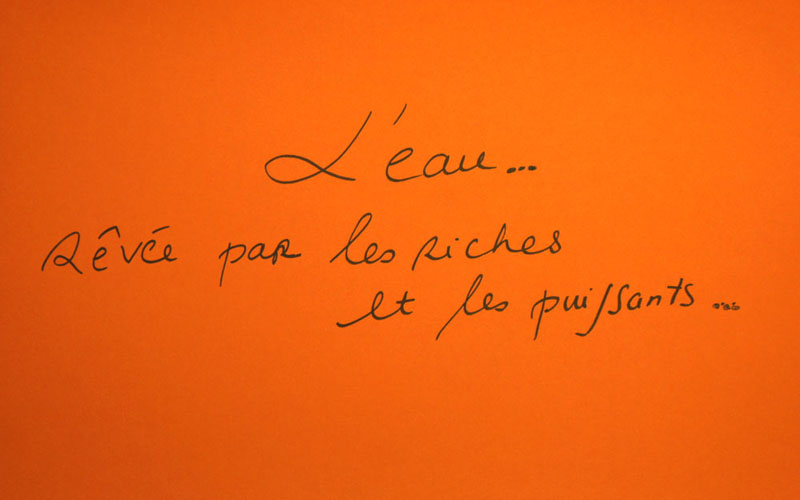 L'eau...
Rêvée par les riches
et les puissants...